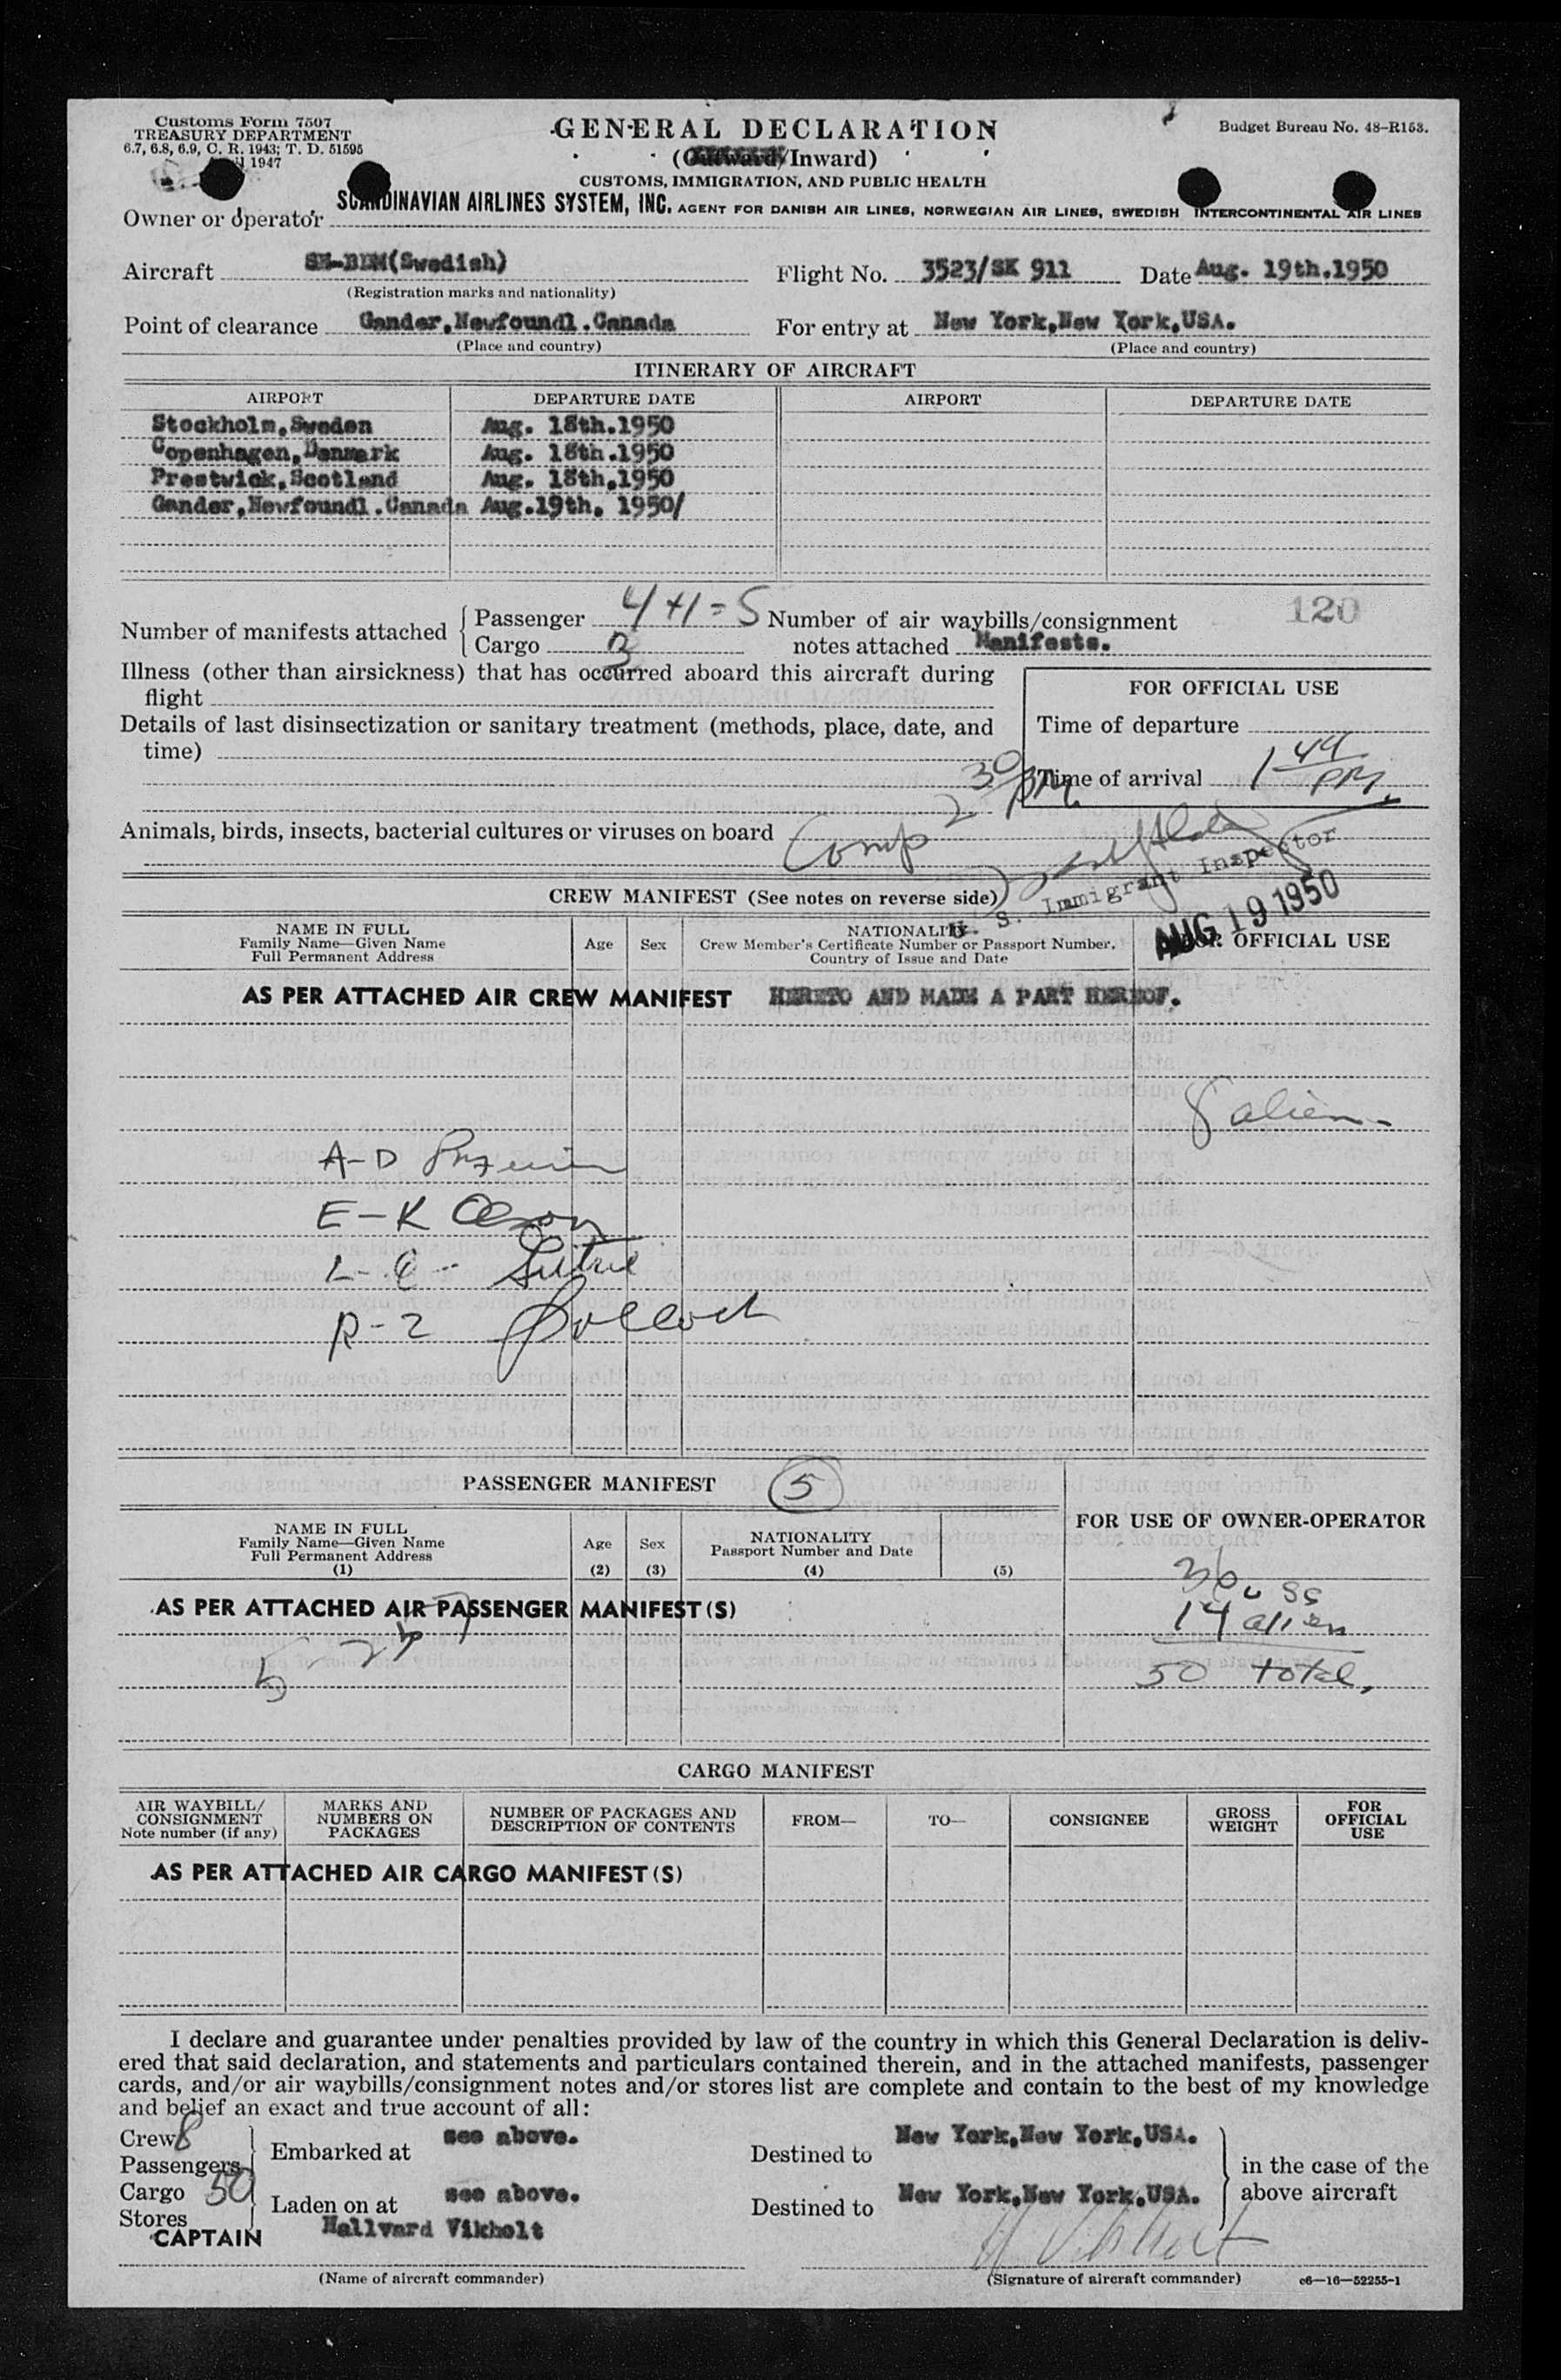 Customs Form 7507
TREASURY DEPARTMENT
6.7, 6.8, 6.9, C. R. 1943; T. D. 51595
1947
GENERAL DECLARATION
(Outward/Inward)
CUSTOMS, IMMIGRATION, AND PUBLIC HEALTH
Budget Bureau No. 48-R153.
Owner or operator SCANDINAVIAN AIRLINES SYSTEM, INC. AGENT FOR DANISH AIR LINES, NORWEGIAN AIR LINES, SWEDISH INTERCONTINENTAL AIR LINES
Aircraft SE-BDM(Swedish) Flight No. 3523/SK 911 Date Aug. 19th.1950
(Registration marks and nationality)
Point of clearance Gander,Newfoundl.Canada For entry at New York,New York,USA.
(Place and country) (Place and country)
ITINERARY OF AIRCRAFT
AIRPORT DEPARTURE DATE AIRPORT DEPARTURE DATE
Stockholm,Sweden Aug. 18th.1950
Copenhagen,Denmark Aug. 18th.1950
Prestwick,Scotland Aug. 18th,1950
Gander,Newfoundl.Canada Aug.19th. 1950/
120
Number of manifests attached Passenger 4+1=5 Number of air waybills/consignment
Cargo 3 notes attached Manifests.
Illness (other than airsickness) that has occurred aboard this aircraft during
flight
Details of last disinsectization or sanitary treatment (methods, place, date, and
time)
FOR OFFICIAL USE
Time of departure
Time of arrival 1 44 PM.
Animals, birds, insects, bacterial cultures or viruses on board
Comp 2 30 PM.
U. S. Immigrant Inspector
AUG 19 1950
CREW MANIFEST (See notes on reverse side)
NAME IN FULL
Family Name—Given Name
Full Permanent Address
Age Sex
NATIONALITY
Crew Member's Certificate Number or Passport Number,
Country of Issue and Date
FOR OFFICIAL USE
AS PER ATTACHED AIR CREW MANIFEST HERETO AND MADE A PART HEREOF.
8 alien
A-D
E-K Olson
L-Q
R-Z
PASSENGER MANIFEST 5
NAME IN FULL
Family Name—Given Name
Full Permanent Address
(1)
Age
(2)
Sex
(3)
NATIONALITY
Passport Number and Date
(4) (5)
FOR USE OF OWNER-OPERATOR
AS PER ATTACHED AIR PASSENGER MANIFEST(S)
36 u ss
14 alien
50 total,
CARGO MANIFEST
AIR WAYBILL/
CONSIGNMENT
Note number (if any)
MARKS AND
NUMBERS ON
PACKAGES
NUMBER OF PACKAGES AND
DESCRIPTION OF CONTENTS
FROM—
TO—
CONSIGNEE
GROSS
WEIGHT
FOR
OFFICIAL
USE
AS PER ATTACHED AIR CARGO MANIFEST(S)
I declare and guarantee under penalties provided by law of the country in which this General Declaration is deliv-
ered that said declaration, and statements and particulars contained therein, and in the attached manifests, passenger
cards, and/or air waybills/consignment notes and/or stores list are complete and contain to the best of my knowledge
and belief an exact and true account of all:
Crew 8
Passengers 50
Embarked at see above. Destined to New York,New York,USA.
in the case of the
above aircraft
Cargo
Stores
Laden on at see above. Destined to New York,New York,USA.
CAPTAIN Hallvard Vikholt
H Vikholt
(Name of aircraft commander) (Signature of aircraft commander) c6—16—52255-1